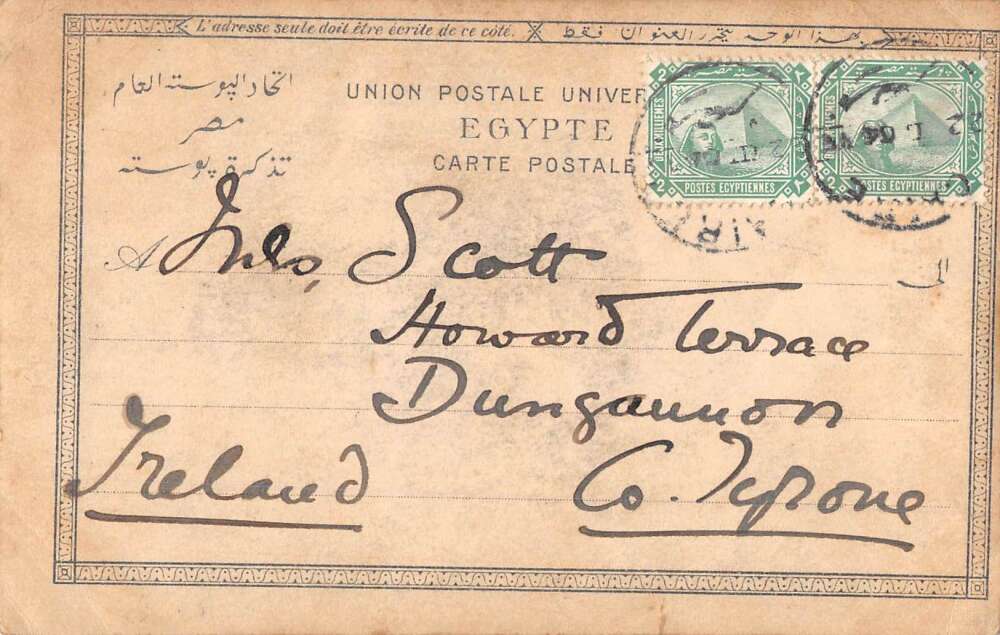 L'adresse seule doit être écrite de ce côté. بهذا الوجه يتحرر العنوان فقط
اتحاد البوسته العام
مصر
تذكرة بوسته
UNION POSTALE UNIVER
EGYPTE
CARTE POSTALE
2 2
DEUX MILLIEMES
POSTES EGYPTIENNES
2 2
DEUX MILLIEMES
POSTES EGYPTIENNES
A Mrs, Scott
Howard Terrace
Dungannon
Co. Tyrone
Ireland